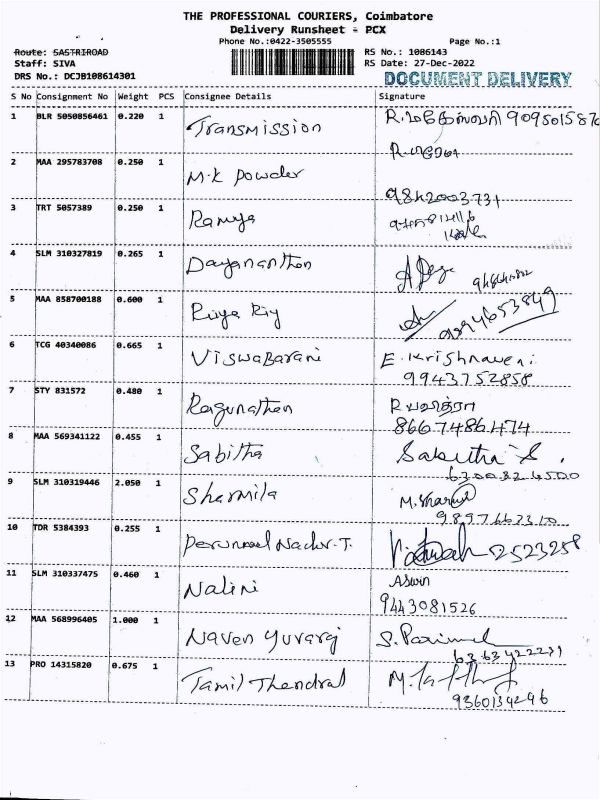 THE PROFESSIONAL COURIERS, Coimbatore
Delivery Runsheet - PCX
Phone No.:0422-3505555 Page No.:1
Route: SASTRIROAD RS No.: 1086143
Staff: SIVA RS Date: 27-Dec-2022
DRS No.: DCJB108614301 DOCUMENT DELIVERY
S No Consignment No Weight PCS Consignee Details Signature
1 BLR 5050856461 0.220 1 Transmission
2 MAA 295783708 0.250 1 M.K powder
9842003731
3 TRT 5057389 0.250 1 Ramya
4 SLM 310327819 0.265 1 Dayananthan
5 MAA 858700188 0.600 1 Riya Riy 9994653849
6 TCG 40340086 0.665 1 Viswabarani E. Krishnaveni
9943752858
7 STY 831572 0.480 1 Ragunathan
8667486474
8 MAA 569341122 0.455 1 Sabitha Sabitha S.
9 SLM 310319446 2.050 1 Sharmila
10 TDR 5384393 0.255 1 2523258
11 SLM 310337475 0.460 1 Nalini Aswin
9443081526
12 MAA 568996405 1.000 1 Naven Yuvaraj
13 PRO 14315820 0.675 1 Tamil Thendral
9360134296